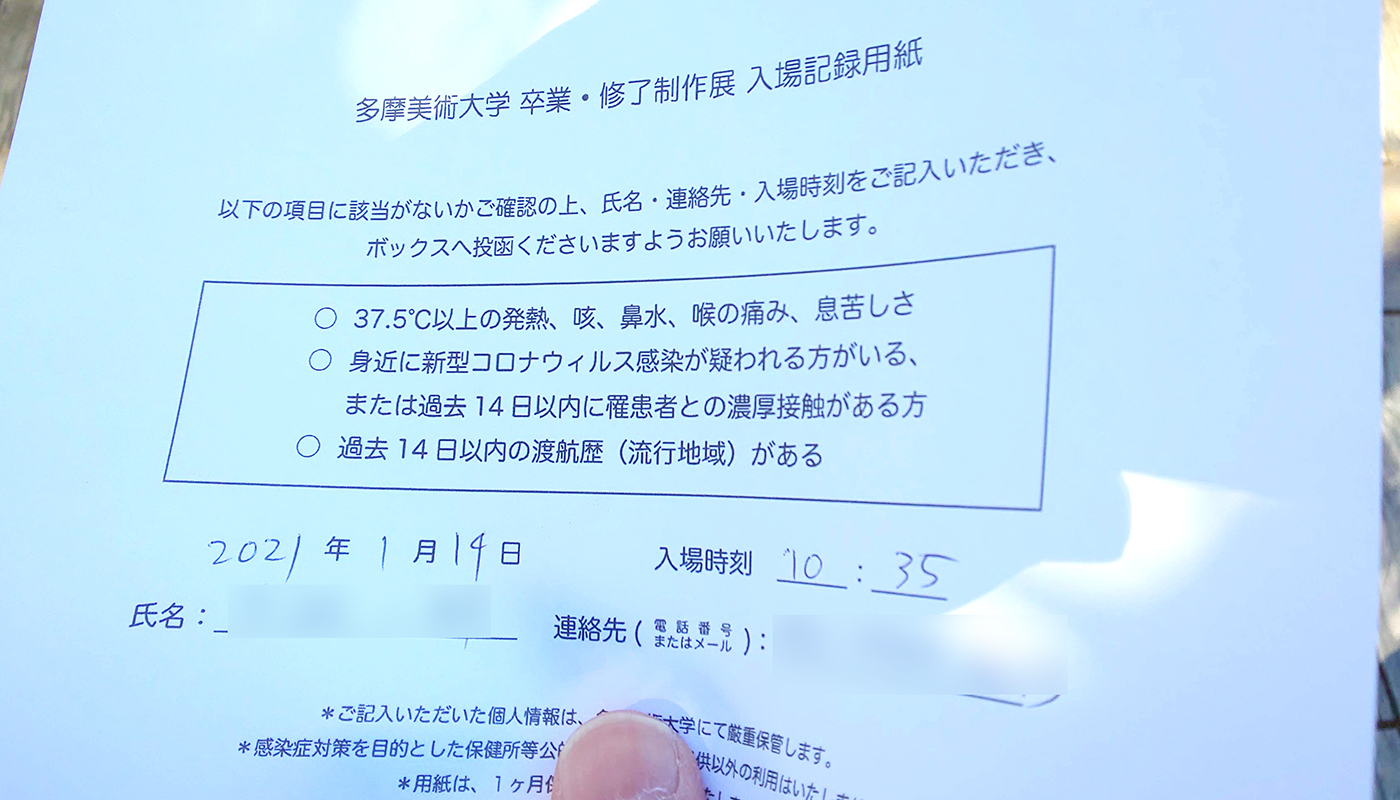 多摩美術大学 卒業・修了制作展 入場記録用紙
以下の項目に該当がないかご確認の上、氏名・連絡先・入場時刻をご記入いただき、
ボックスへ投函くださいますようお願いいたします。
○ 37.5℃以上の発熱、咳、鼻水、喉の痛み、息苦しさ
○ 身近に新型コロナウィルス感染が疑われる方がいる、
または過去14日以内に罹患者との濃厚接触がある方
○ 過去14日以内の渡航歴（流行地域）がある
2021年1月14日 入場時刻 10:35
氏名： 連絡先(電話番号またはメール)：
＊ご記入いただいた個人情報は、 術大学にて厳重保管します。
＊感染症対策を目的とした保健所等公的 供以外の利用はいたしま
＊用紙は、1ヶ月保